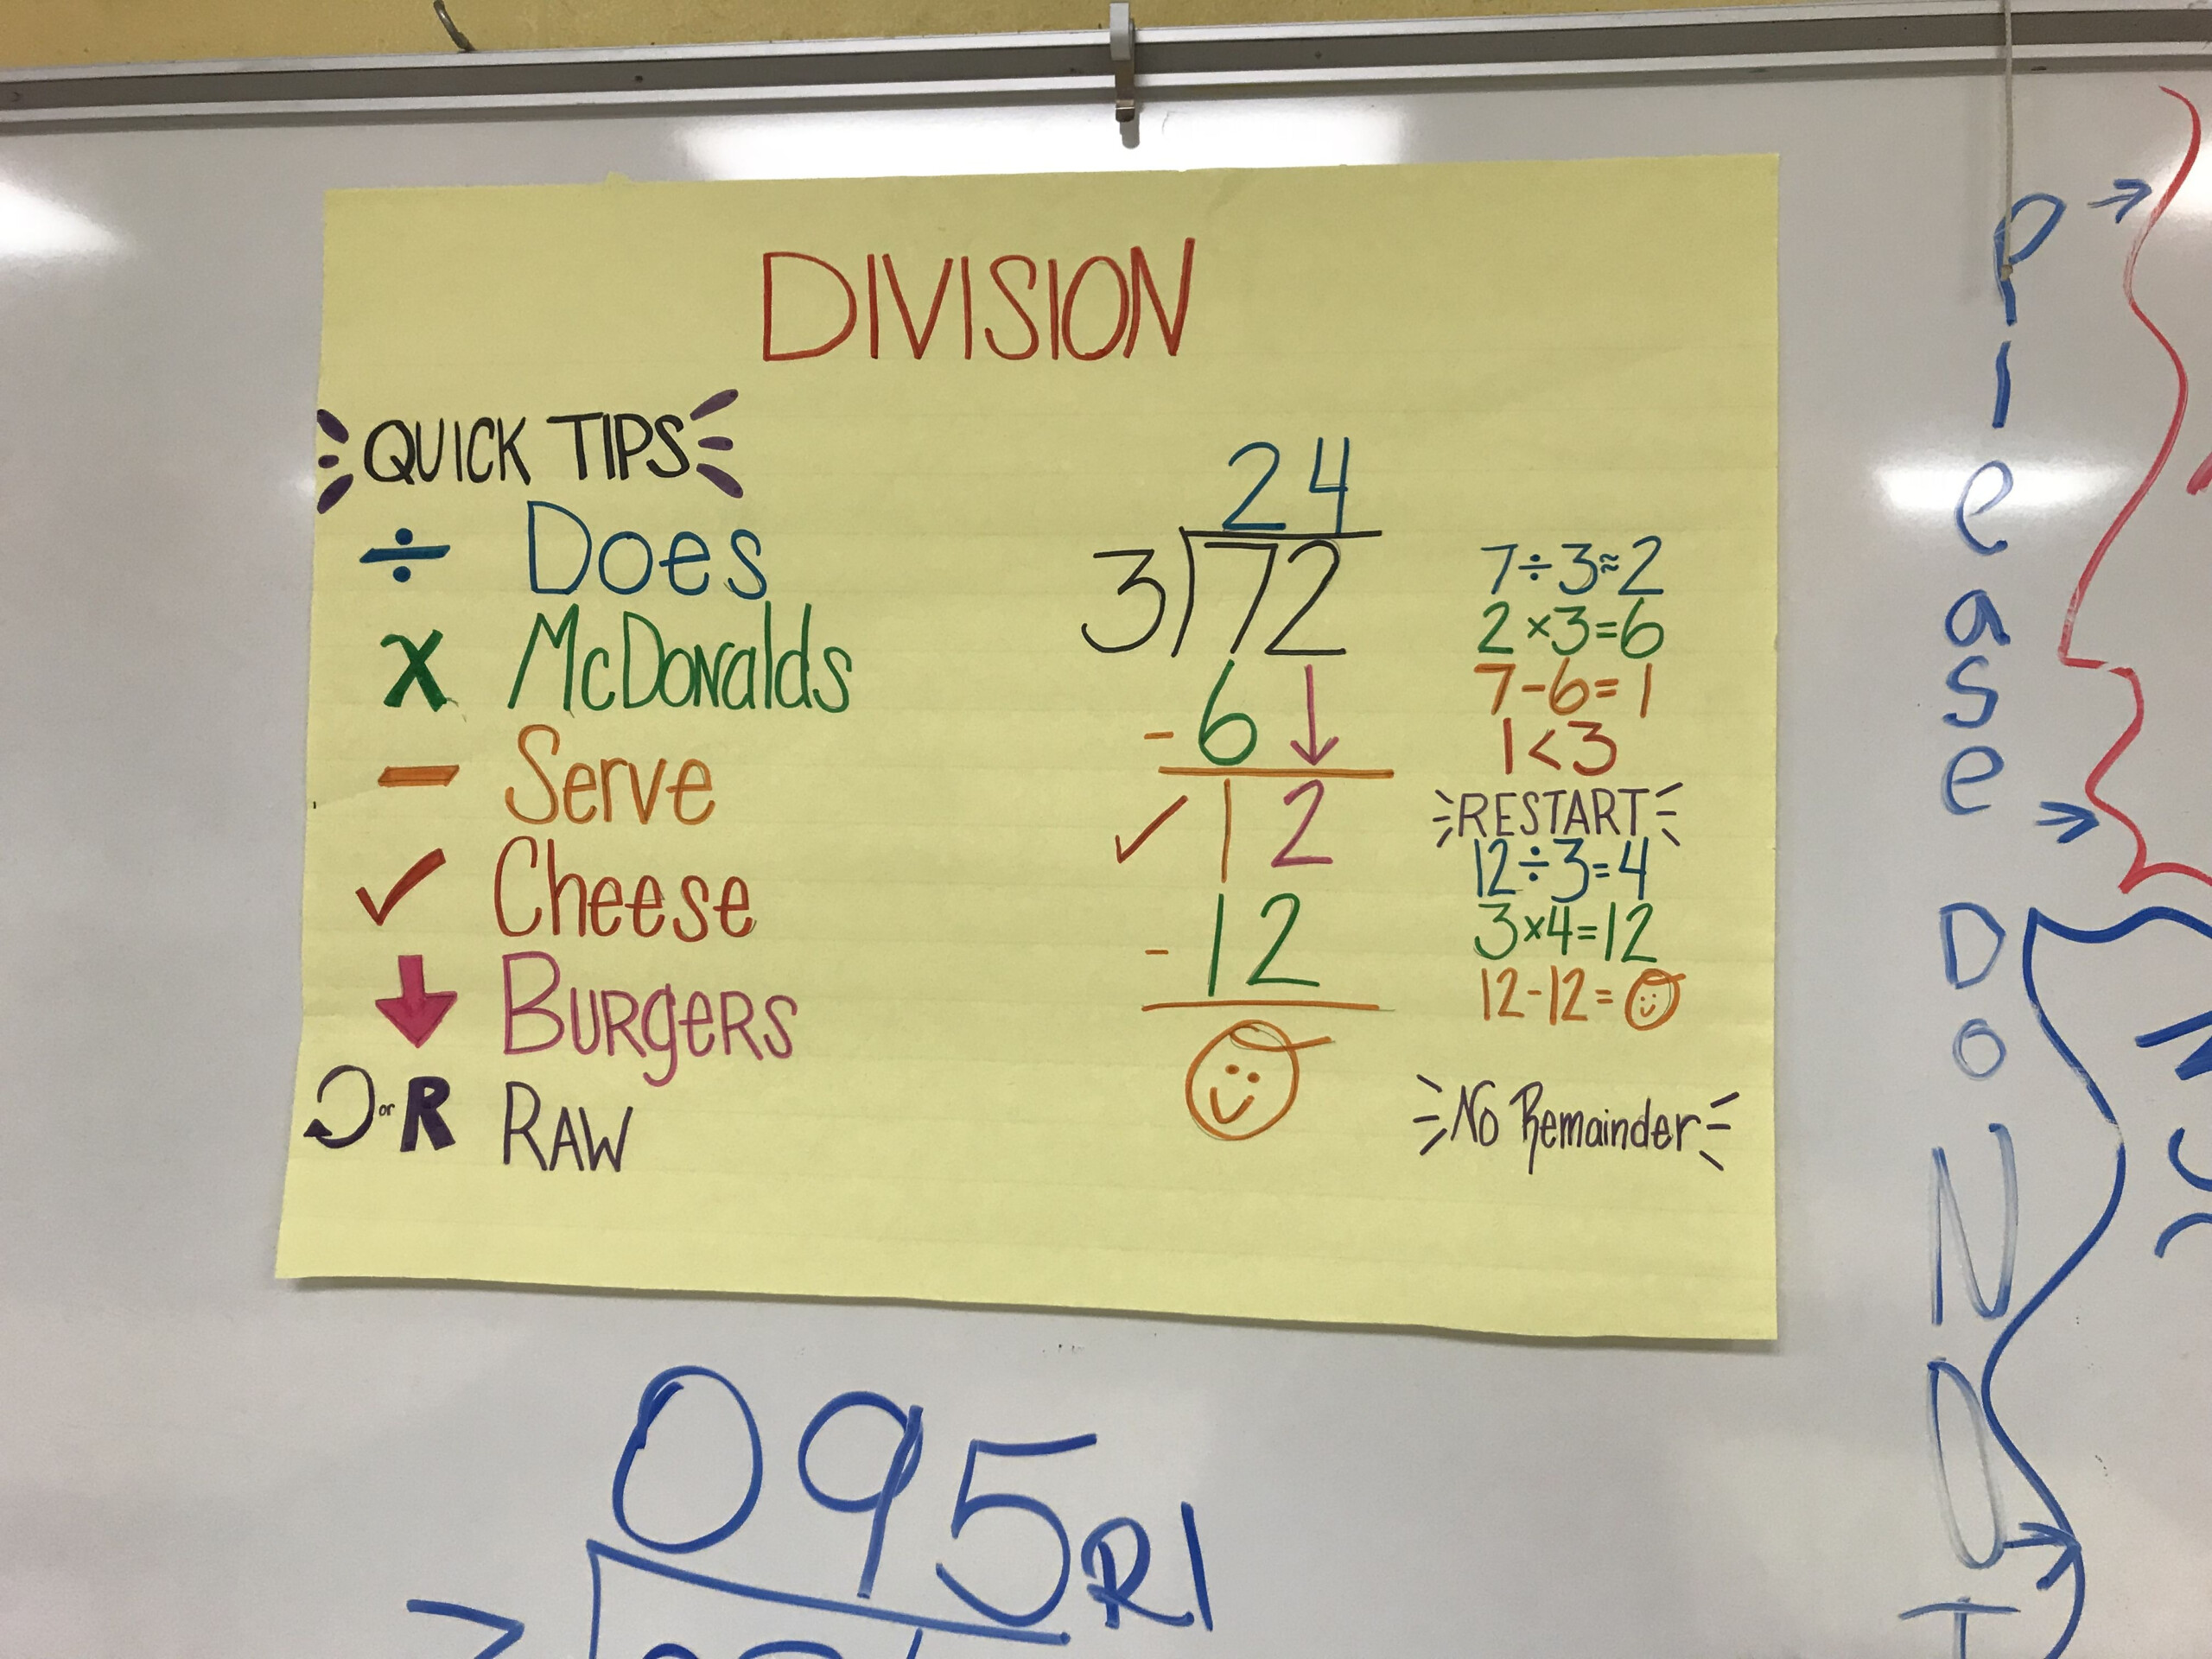 DIVISION
QUICK TIPS
÷ Does
x McDonalds
- Serve
✓ Cheese
↓ Burgers
or R Raw
24
3)72
-6↓
✓12
-12
7÷3≈2
2×3=6
7-6=1
1<3
RESTART
12÷3=4
3×4=12
12-12=
No Remainder
095 R1
Please
Do
NOT